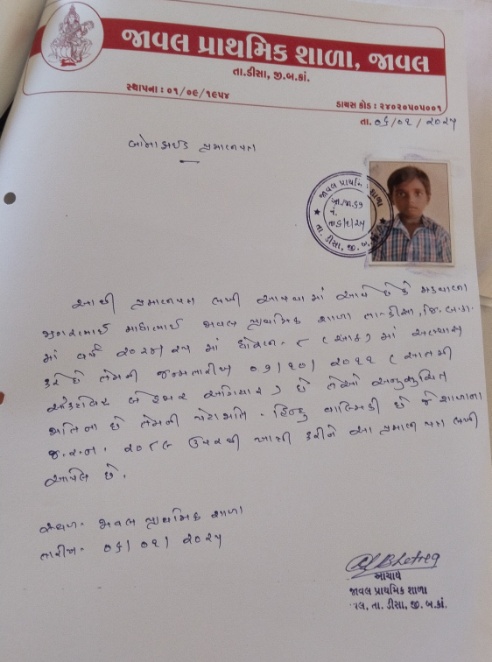 જાવલ પ્રાથમિક શાળા, જાવલ
તા.ડીસા, જી.બ.કાં.
સ્થાપના : ૦૧/૦૯/૧૯૫૪
ડાયસ કોડ : ૨૪૦૨૦૫૦૫૦૦૧
તા. ૦૬/૦૧/૨૦૨૫
બોનાફાઈડ પ્રમાણપત્ર
જાવલ પ્રાથમિક શાળા
તા. ડીસા, જી. બ.કાં.
આથી પ્રમાણપત્ર લખી આપવામાં આવે છે કે
માં વર્ષ ૨૦૨૪/૨૫ માં ધોરણ - ૮ (આઠ) માં અભ્યાસ
કરે છે તેમની જન્મતારીખ ૦૭/૧૦/૨૦૧૧ (સાતમી
ઓક્ટોબર બે હજાર અગિયાર) છે તેઓ અનુસુચિત
જાતિના છે તેમની પેટાજાતિ - હિન્દુ વાલ્મિકી છે જે શાળાના
જ.ર.નં. ૨૦૮૯ ઉપરથી ખાત્રી કરીને આ પ્રમાણપત્ર લખી
આપેલ છે.
સ્થળ:- જાવલ પ્રાથમિક શાળા
તારીખ:- ૦૬/૦૧/૨૦૨૫
આચાર્ય
જાવલ પ્રાથમિક શાળા
તા. ડીસા, જી.બ.કાં.